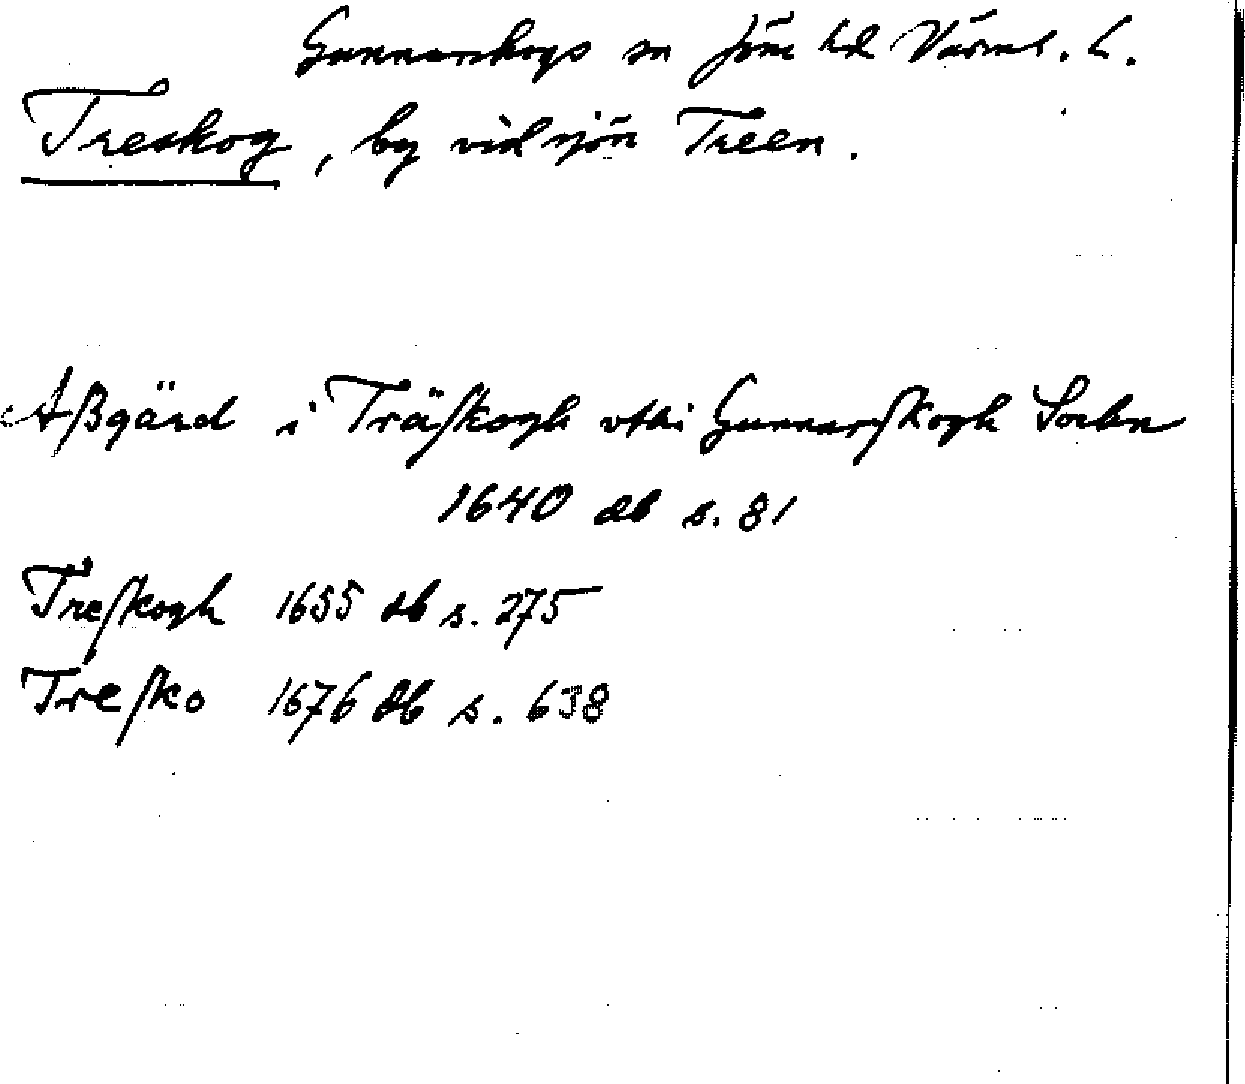 Gunnarskogs sn Jösse hd Värml. l.
Treskog, by vid sjön Treen.
Aßgärd i Träskogh vthi Gunnarskogh Sochn
1640 db s. 81
Treskogh 1655 db s. 275
Tresko 1676 db s. 638